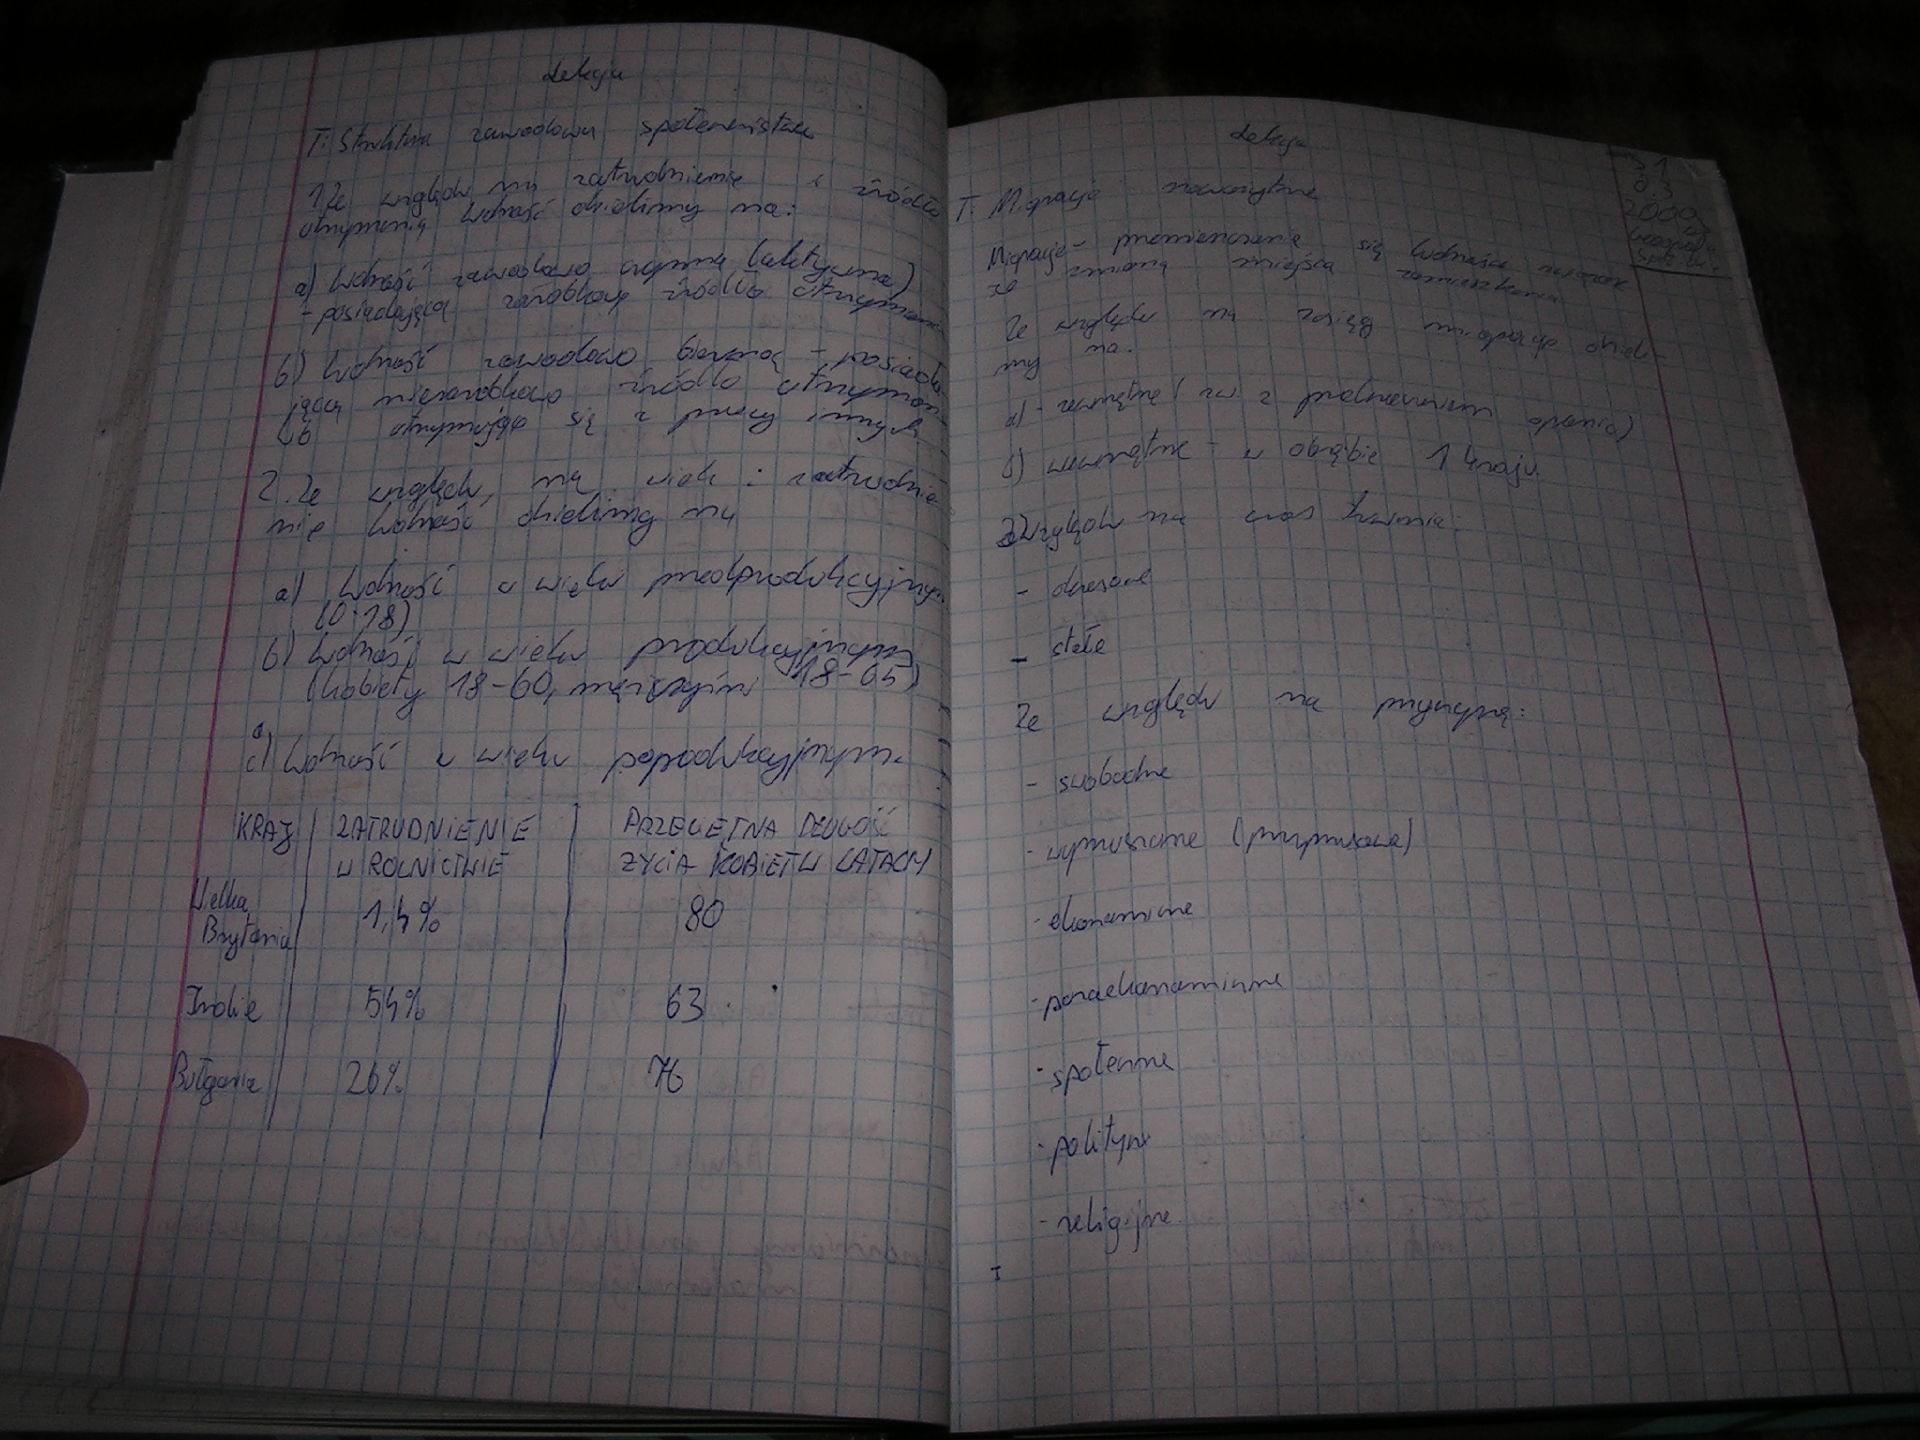 Lekcja
T: Struktura zawodowa społeczeństwa
1. Ze względu na zatrudnienie i źródło
utrzymania ludność dzielimy na:
a) ludność zawodowo czynna (aktywna)
- posiadająca zarobkowe źródło utrzymania
b) ludność zawodowo bierną - posiada
jącą niezarobkowe źródło utrzyman
lub utrzymując się z pracy innych
2. Ze względu, na wiek i zatrudnie
nie ludność dzielimy na
a) ludność w wieku przedprodukcyjnym
(0-18)
b) ludność w wieku produkcyjnym
(kobiety 18-60, mężczyźni 18-65)
c) ludność w wieku poprodukcyjnym.
KRAJ ZATRUDNIENIE PRZECIĘTNA DŁUGOŚĆ
W ROLNICTWIE ŻYCIA KOBIET W LATACH
Wielka
Brytania 1,4% 80
Indie 54% 63
Bułgaria 26% 76
Lekcja
T: Migracje zewnętrzne
Migracje - przemieszczanie się ludności
ze zmianą miejsca zamieszkania
Ze względu na zasięg migracje dzieli-
my na:
a) - zewnętrzne (zw. z przekroczeniem granic)
b) wewnętrzne - w obrębie 1 kraju.
względu na czas trwania:
- okresowe
- stałe
Ze względu na przyczynę:
- swobodne
- wymuszone (przymusowe)
- ekonomiczne
- pozaekonomiczne
- społeczne
- polityczne
- religijne
31
03
2000